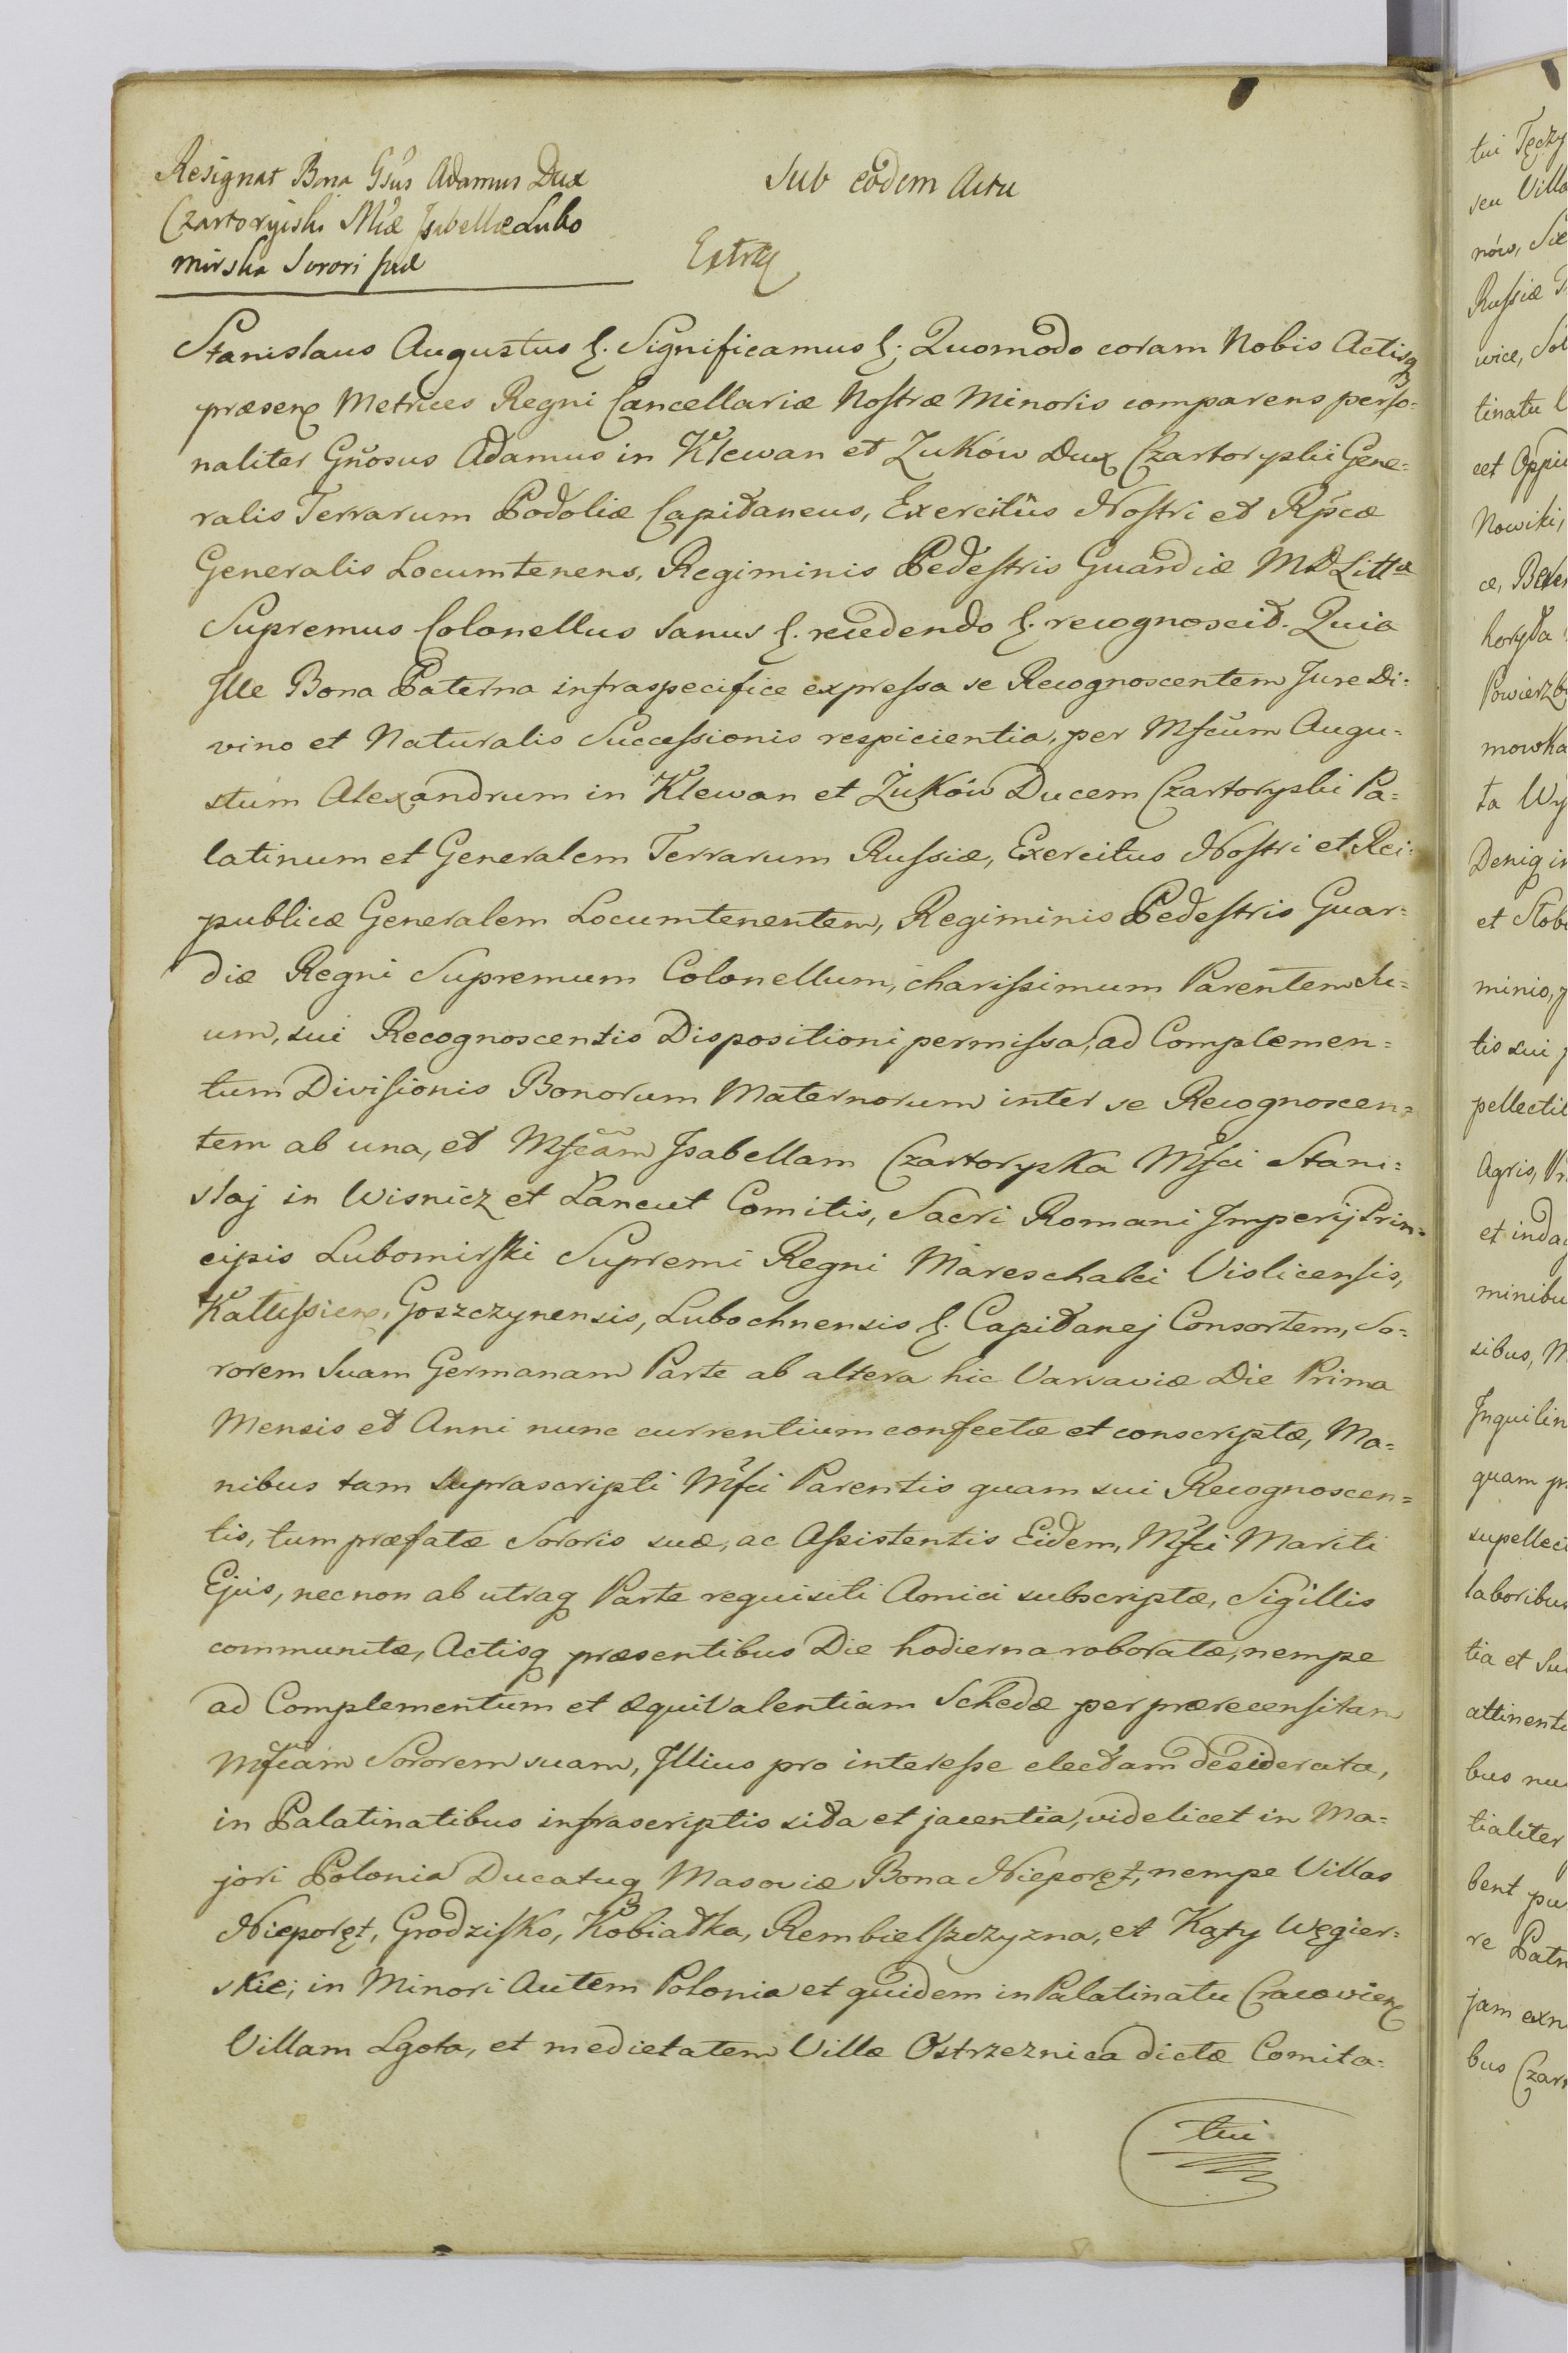 Resignat Bona Gsus Adamus Dux
Czartoryiski Mcæ Isabellæ Lubo
mirska Sorori suæ
Sub eodem Actu
Stanislaus Augustus &. Significamus &; Quomodo coram Nobis Actisq
præsenx Metrices Regni Cancellariæ Nostræ Minoris comparens perso=
naliter Gnosus Adamus in Klewan et Zuków Dux Czartoryski Gene=
ralis Terrarum Podoliæ Capitaneus, Exercitûs Nostri et Rpcæ
Generalis Locumtenens, Regiminis Pedestris Guardiæ M D Littæ
Supremus Colonellus sanus &. recedendo &. recognoscit. Quia
Ille Bona Paterna infraspecifice expressa se Recognoscentem Jure Di=
vino et Naturalis Successionis respicientia, per Mfcum Augu=
stum Alexandrum in Klewan et Żuków Ducem Czartoryski Pa=
latinum et Generalem Terrarum Russiæ, Exercitus Nostri et Rei=
publicæ Generalem Locumtenentem, Regiminis Pedestris Guar=
diæ Regni Supremum Colonellum, charissimum Parentem Su=
um, sui Recognoscentis Dispositioni permissa, ad Complemen=
tum Divisionis Bonorum Maternorum inter se Recognoscen=
tem ab una, et Mfcam Isabellam Czartoryska Mfci Stani=
slaj in Wisnicz et Lancut Comitis, Sacri Romani Imperij Prin=
cipis Lubomirski Supremi Regni Mareschalci Vislicensis,
Kałussienx, Goszczynensis, Lubochnensis &. Capitanej Consortem, So=
rorem Suam Germanam Parte ab altera hic Varsaviæ Die Prima
Mensis et Anni nunc currentium confectæ et conscriptæ, Ma=
nibus tam suprascripti Mfci Parentis quam sui Recognoscen=
tis, tum præfatæ Sororis suæ, ac Assistentis Eidem, Mfci Mariti
Ejus, necnon ab utraq Parte requisiti Amici subscriptæ, Sigillis
communitæ, Actisq præsentibus Die hodierna roboratæ, nempe
ad Complementum et æquivalentiam Schedæ per prærecensitam
Mfcam Sororem suam, Illius pro interesse electam desiderata,
in Palatinatibus infrascriptis sita et jacentia, videlicet in Ma=
jori Polonia Ducatuq Masoviæ Bona Nieporęt, nempe Villas
Nieporęt, Grodzisko, Kobiałka, Rembielszczyzna, et Kąty Węgier=
skie; in Minori Autem Polonia et quidem in Palatinatu Cracovienx
Villam Lgota, et medietatem Villæ Ostrzeznica dictæ Comita=
tui
tui Tęczy
seu Villa
nów, Sie
Russiæ
wice, Sol
tinatu
cet Oppi
Nowiki,
ce,
Powierzb
mowka
ta Wy
Deniq in
et Słob
minio,
tis sui
pellectil
Agris,
et inda
minibu
sibus, M
Inquilin
quam
supellec
laboribus
tia et Su
attinent
bus nu
tialiter
bent pu
re Patr
jam
bus Czar